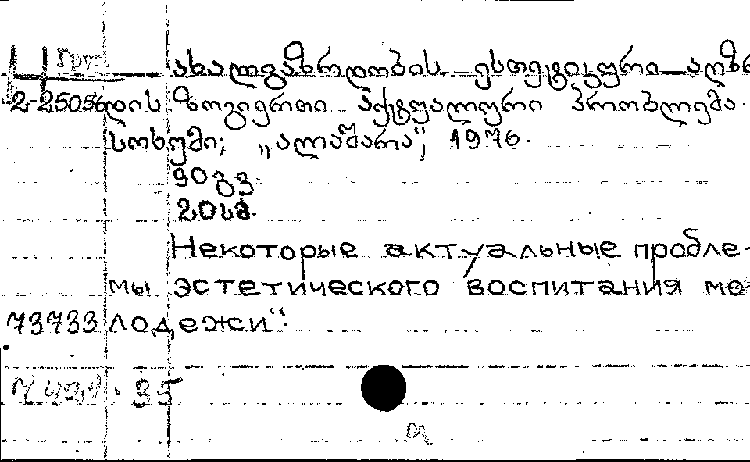 4 Груз
ახალგაზრდობის ესთეტიკური აღზრ
2-2505 დის ზოგიერთი აქტუალური პრობლემა.
სოხუმი; „ალაშარა“, 1976.
90 გვ.
20 სმ.
Некоторые актуальные пробле-
мы эстетического воспитания мо-
73733 лодежи".
35